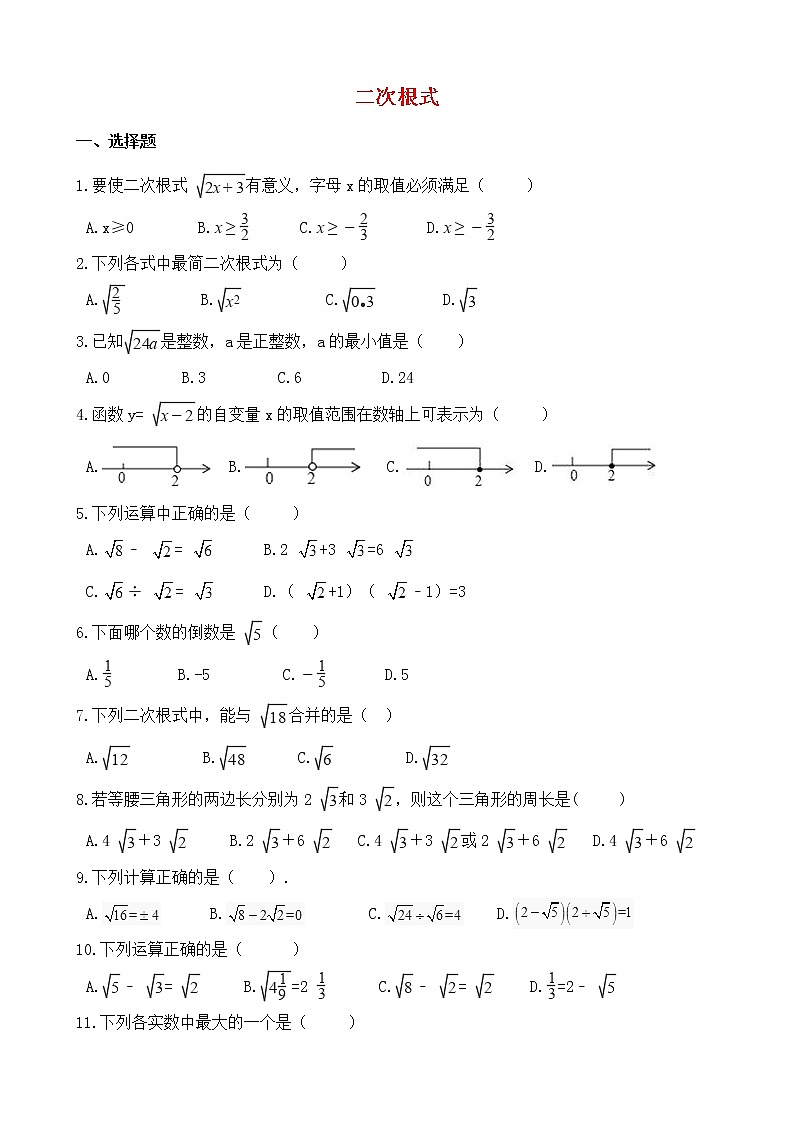 二次根式
一、选择题
1.要使二次根式 √(2x+3)有意义，字母x的取值必须满足（　　）
A.x≥0　　B.x≥3/2　　C.x≥－2/3　　D.x≥－3/2
2.下列各式中最简二次根式为（　　）
A.√(2/5)　　B.√(x²)　　C.√(0•3)　　D.√3
3.已知√(24a)是整数，a是正整数，a的最小值是（　　）
A.0　　B.3　　C.6　　D.24
4.函数y= √(x－2)的自变量x的取值范围在数轴上可表示为（　　）
A. 0 2　　B. 0 2　　C. 0 2　　D. 0 2
5.下列运算中正确的是（　　）
A.√8﹣ √2= √6　　B.2 √3+3 √3=6 √3
C.√6÷ √2= √3　　D.（ √2+1）（ √2﹣1）=3
6.下面哪个数的倒数是 √5（　　）
A.1/5　　B.-5　　C.－1/5　　D.5
7.下列二次根式中，能与 √18合并的是（　）
A.√12　　B.√48　　C.√6　　D.√32
8.若等腰三角形的两边长分别为2 √3和3 √2，则这个三角形的周长是(　　)
A.4 √3+3 √2　　B.2 √3+6 √2　　C.4 √3+3 √2或2 √3+6 √2　　D.4 √3+6 √2
9.下列计算正确的是（　　）.
A.√16=±4　　B.√8－2√2=0　　C.√24÷√6=4　　D.(2－√5)(2+√5)=1
10.下列运算正确的是（　　）
A.√5﹣ √3= √2　　B.√(4 1/9)=2 1/3　　C.√8﹣ √2= √2　　D.1/3=2﹣ √5
11.下列各实数中最大的一个是（　　）